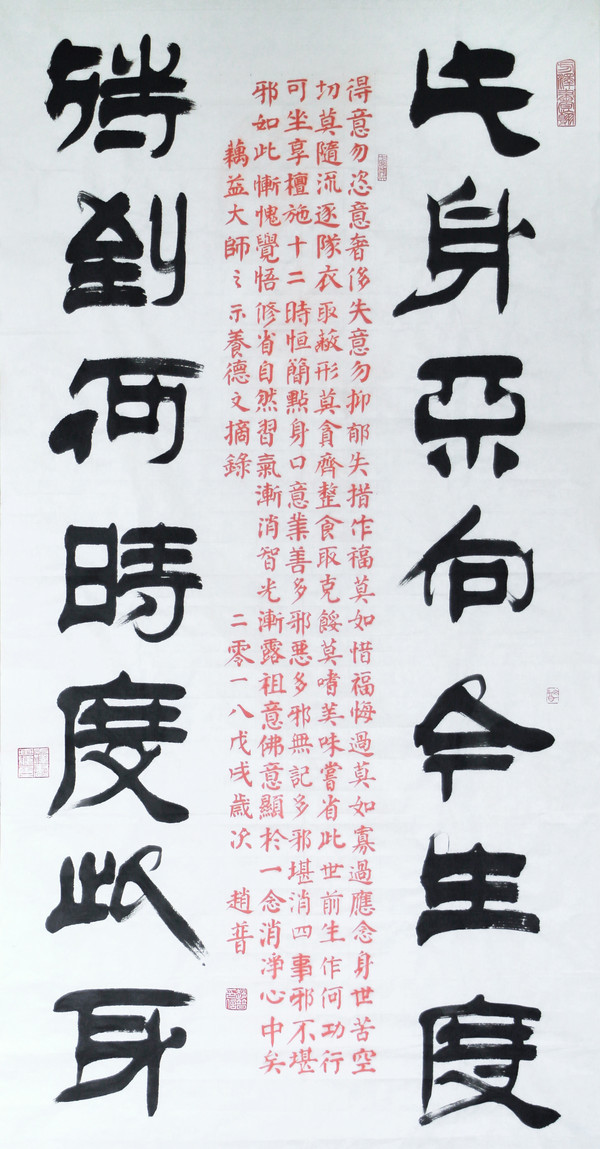 此身不向今生度
得意勿恣意奢侈失意勿抑郁失措作福莫如惜福悔過莫如寡過應念身世苦空
切莫隨流逐隊衣取蔽形莫貪齊整食取克餒莫嗜美味嘗省此世前生作何功行
可坐享檀施十二時恒簡點身口意業善多邪惡多邪無記多邪堪消四事邪不堪
邪如此慚愧覺悟修省自然習氣漸消智光漸露祖意佛意顯於一念消淨心中矣
藕益大師之示養德文摘錄 二零一八戊戌歲次 趙普
待到何時度此身